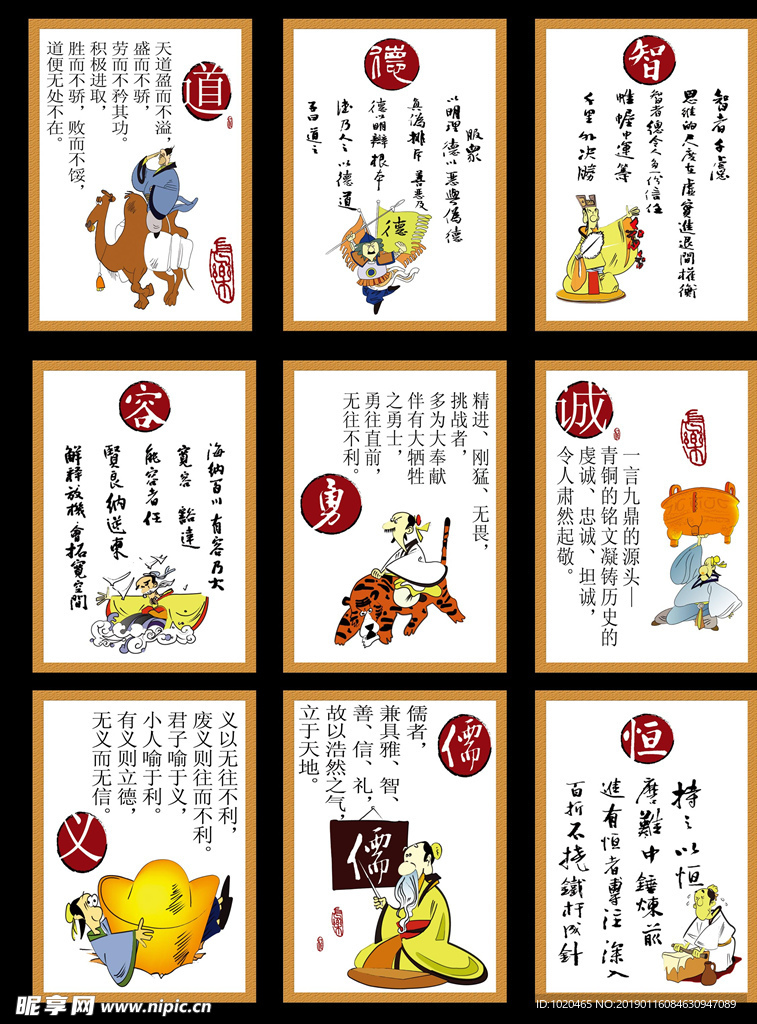 道
天道盈而不溢，
盛而不骄，
劳而不矜其功。
积极进取，
胜而不骄，败而不馁，
道便无处不在。
長樂
德
服眾
以明理 德以惡與偽德
真偽排斥 善惡及
德以明辨根本
德乃人之以德道
子曰道之
德
智
智者千慮
思維的尺度在虛實進退間權衡
智者總令人多一份信任
帷幄中運籌
千里外決勝
容
海納百川 有容乃大
寬容 豁達
能容者任
賢良納送東
解釋放機會拓寬空間
勇
精进、刚猛、无畏，
挑战者，
多为大奉献
伴有大牺牲
之勇士，
勇往直前，
无往不利。
诚
長樂
一言九鼎的源头—
青铜的铭文凝铸历史的
虔诚、忠诚、坦诚，
令人肃然起敬。
义以无往不利，
废义则往而不利。
君子喻于义，
小人喻于利。
有义则立德，
无义而无信。
义
儒
儒者，
兼具雅、智、
善、信、礼，
故以浩然之气，
立于天地。
儒
長樂
恒
持之以恒
磨難中錘煉前
進有恒者專注深入
百折不撓鐵杵成針
昵享网 www.nipic.cn
ID:1020465 NO:20190116084630947089